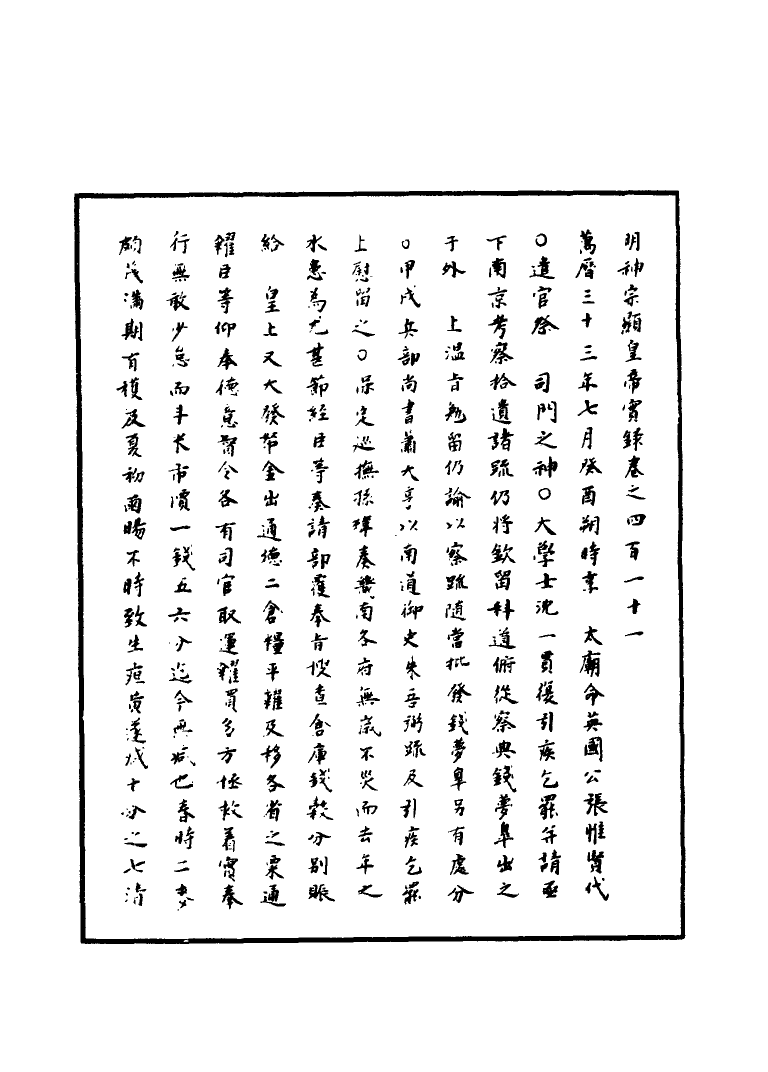 明神宗顯皇帝實錄卷之四百一十一
萬曆三十三年七月癸酉朔時享　太廟命英國公張惟賢代
○遣官祭　司門之神○大學士沈一貫復引疾乞罷并請亟
下南京考察拾遺諸疏仍將欽留科道俯從察典錢夢臯出之
于外　上溫旨勉留仍諭以察疏隨當批發錢夢臯另有處分
○甲戌兵部尚書蕭大亨以南道御史朱吾弼疏及引疾乞罷
上慰留之○保定巡撫孫瑋奏畿南各府無歲不災而去年之
水患為尤甚節經臣等奏請部覆奉旨搜查倉庫錢穀分別賑
給　皇上又大發帑金出通德二倉糧平糶及移各省之粟通
糴臣等仰奉德意督令各有司官取運糴買多方拯救着實奉
行無敢少怠而斗米市價一錢五六分迄今無减也春時二麥
頗茂滿期有穫及夏初雨暘不時致生疸黃遂减十分之七清